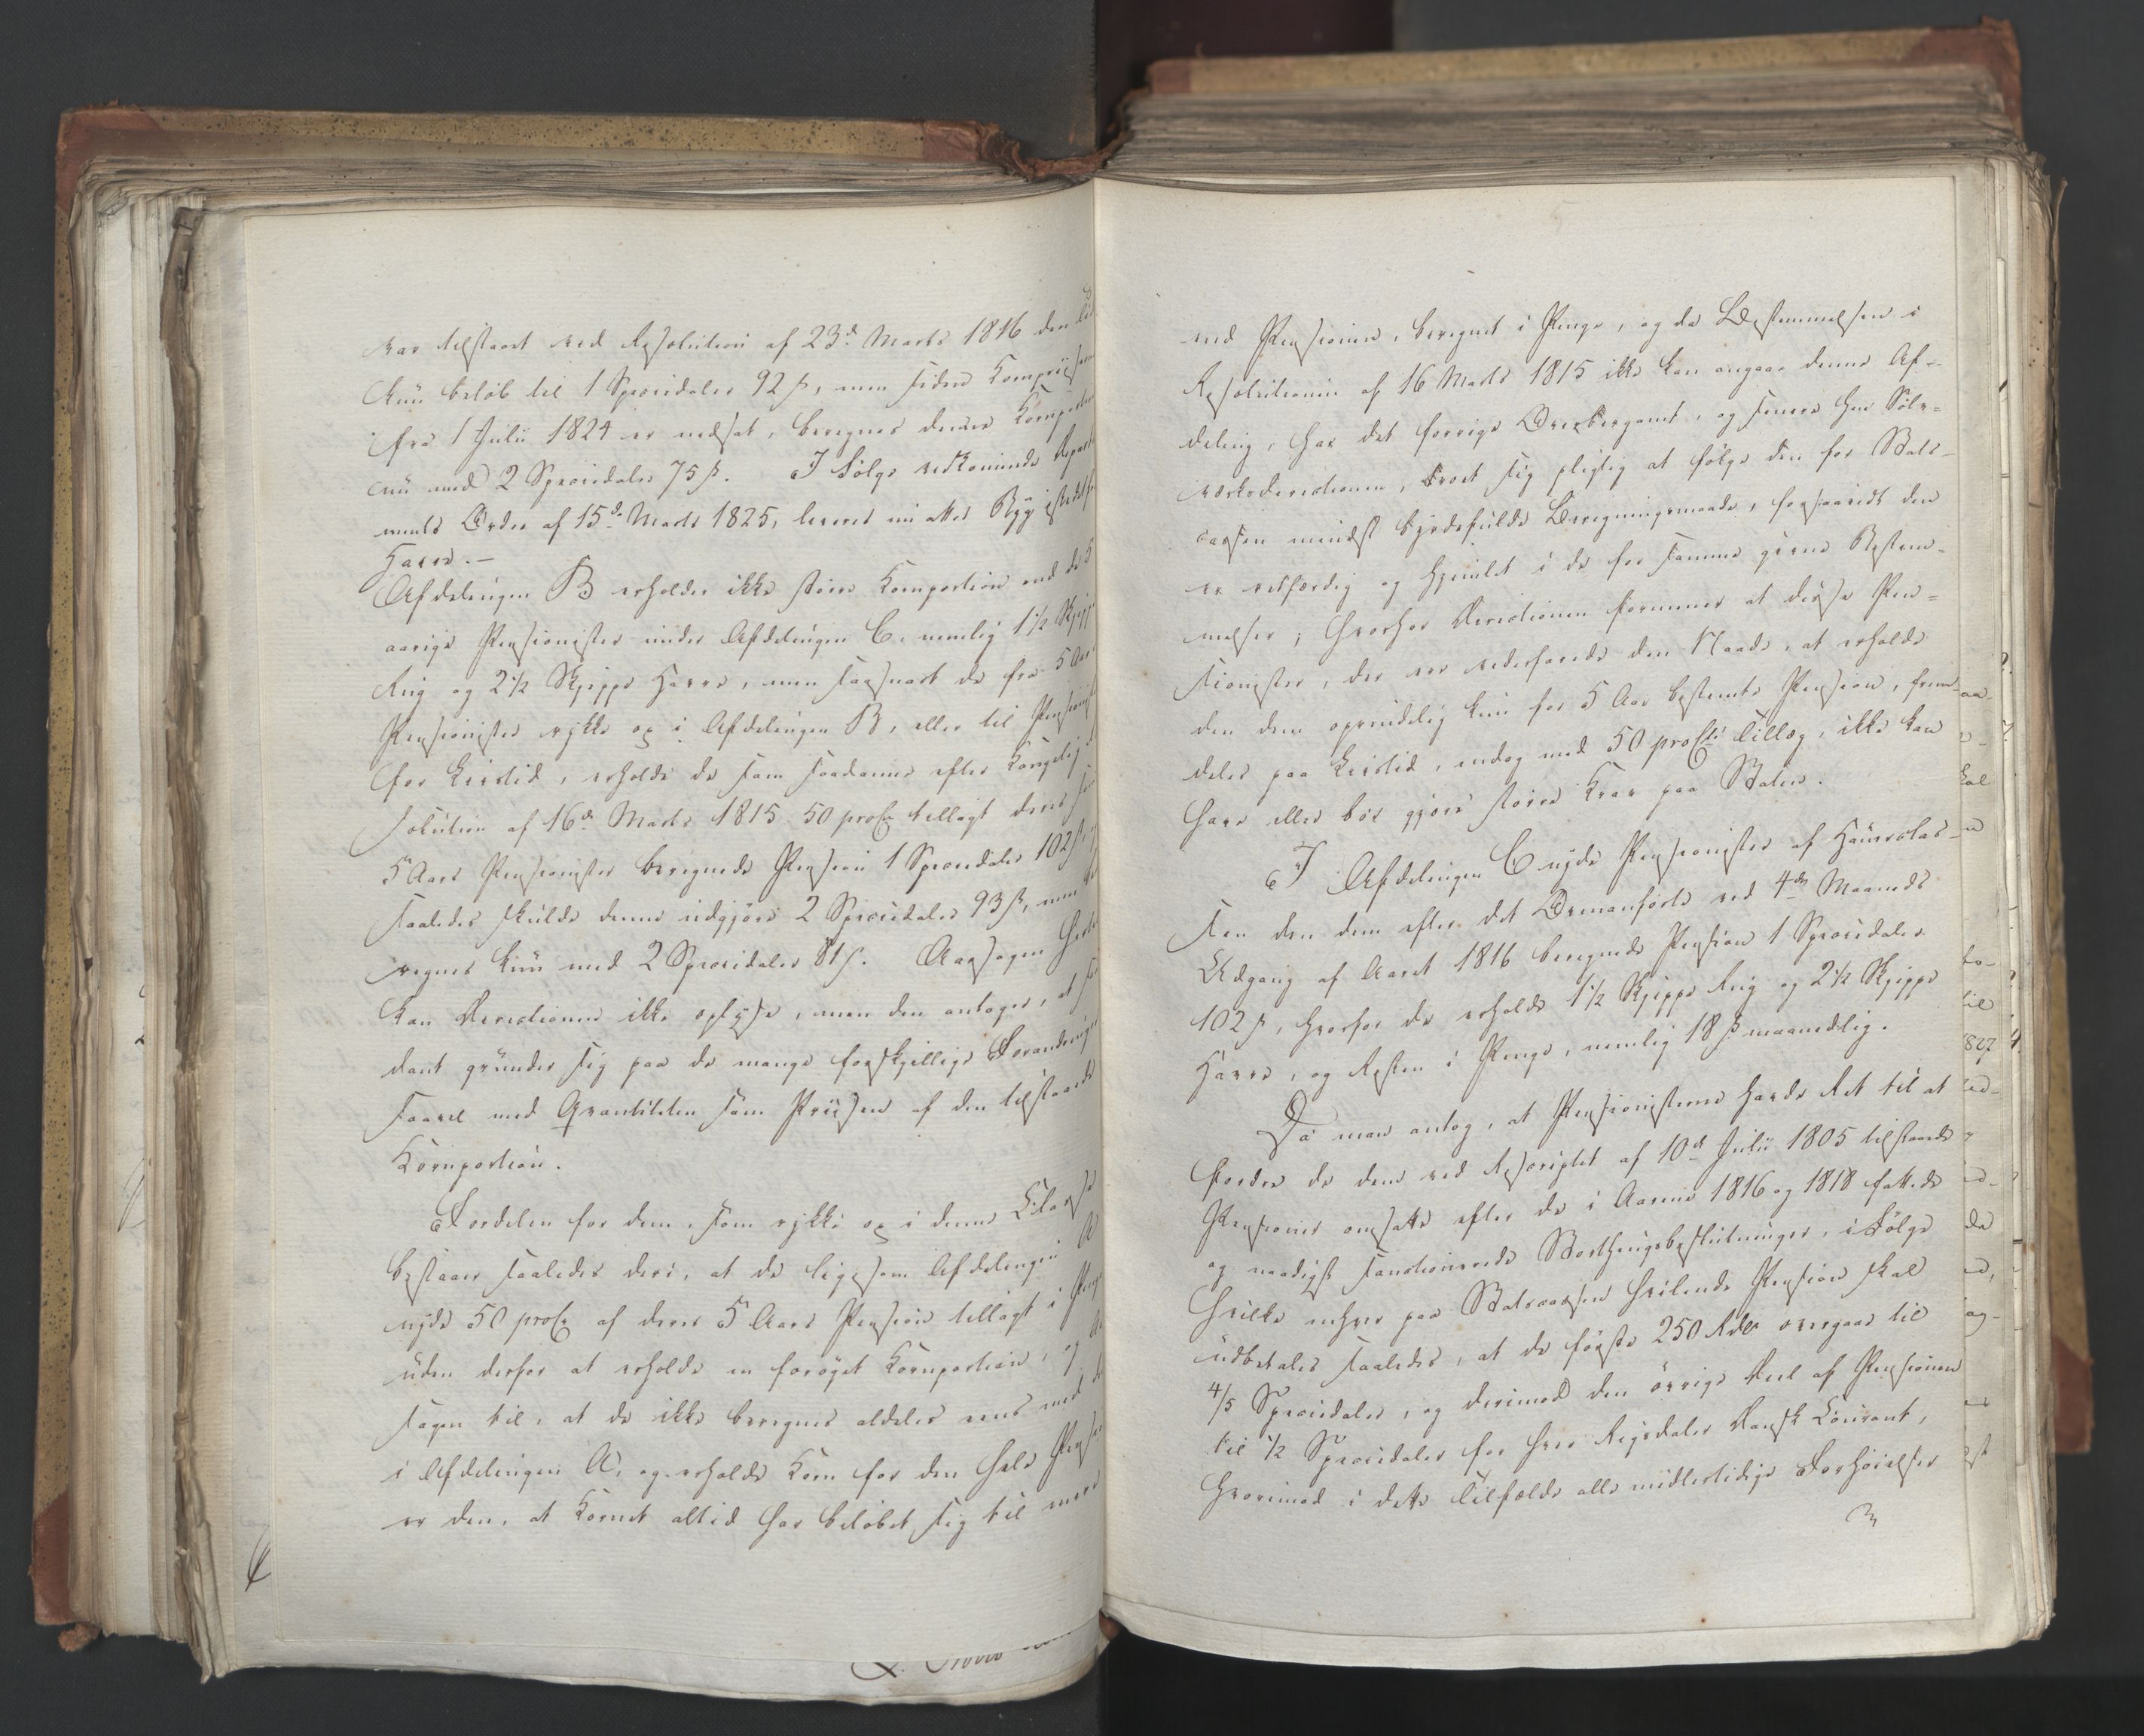 var tilstaaet ved Resolution af 23d Marts 1816 den
kun beløb til 1 Speciedaler 92 ß, men siden Kornpriisen
fra 1 Julii 1824 er nedsat, beregnes denne Kornportion
nu med 2 Speciedaler 75 ß. I Følge vedkommende Departe
ments Ordre af 15de Marts 1825, leveres nu atter Byg istedetfor
Havre. –
Afdelingen B erholder ikke større Kornportion end de 5
aarige Pensionister under Afdelingen C, nemlig 1 1/2 Skjeppe
Rug og 2 1/2 Skjeppe Havre, men saasnart de fra 5 Aars
Pensionister rykke op i Afdelingen B, eller til Pensionist
for Livstid, erholde de som saadanne efter Kongelig
solution af 16de Marts 1815 50 proCt tillagt deres
5 Aars Pensionister beregnede Pension 1 Speciedaler 102 ß,
saaledes skulde denne udgjøre 2 Speciedaler 93 ß, men
regnes kun med 2 Speciedaler 81 ß. Aarsagen
kan Directionen ikke oplyse, men den antager, at
dant grunder sig paa de mange forskjellige Forandringer
saavel med Qvantiteten som Priisen af den tilstaaede
Kornportion.
Fordelen for dem, som rykke op i denne Classe
bestaaer saaledes deri, at de ligesom Afdelingen A
nyde 50 proCt af deres 5 Aars Pension tillagt i Penge
uden derfor at erholde en forøget Kornportion, og
sagen til, at de ikke beregnes aldeles eens med
i Afdelingen A, og erholde Korn for den hele
er den, at Kornet altid har beløbet sig til mere
end Pensionen, beregnet i Penge, og da Bestemmelsen i
Resolutionen af 16 Marts 1815 ikke kan angaae denne Af-
deling, har det forrige Overbergamt, og senere hen Sølv-
værksdirectionen, troet sig pligtig at følge den for Stats-
cassen mindst byrdefulde Beregningsmaade, forsaavidt den
er retfærdig og hjemlet i de for samme givne Bestem-
melser; hvorhos Directionen formener at disse Pen-
sionister, der er vederfaret den Naade, at erholde
den dem oprindelig kun for 5 Aar bestemte Pension, frem-
deles paa Livstid, endog med 50 proCts Tillæg, ikke kan
have eller bør gjøre større Krav paa Staten.
I Afdelingen C nyde Pensionister af Haandlas-
sen den dem efter det Ovenanførte ved 4de Maaneds
Udgang af Aaret 1816 beregnede Pension 1 Speciedaler
102 ß, hvorfor de erholde 1 1/2 Skjeppe Rug og 2 1/2 Skjeppe
Havre, og Resten i Penge, nemlig 18 ß maanedlig.
Da man antog, at Pensionisterne havde Ret til at
fordre de dem ved Rescriptet af 10de Julii 1805 tilstaaede
Pensioner omsatte efter de i Aarene 1816 og 1818 fattede
og naadigst sanctionerede Storthingsbeslutninger, i Følge
hvilke enhver paa Statscassen hvilende Pension skal
udbetales saaledes, at de første 250 Rdlr overgaae til
4/5 Speciedaler, og derimod den øvrige Deel af Pensionen
til 1/2 Speciedaler for hver Rigsdaler Dansk Courant,
hvorimod i dette Tilfælde alle midlertidige Forhøielser